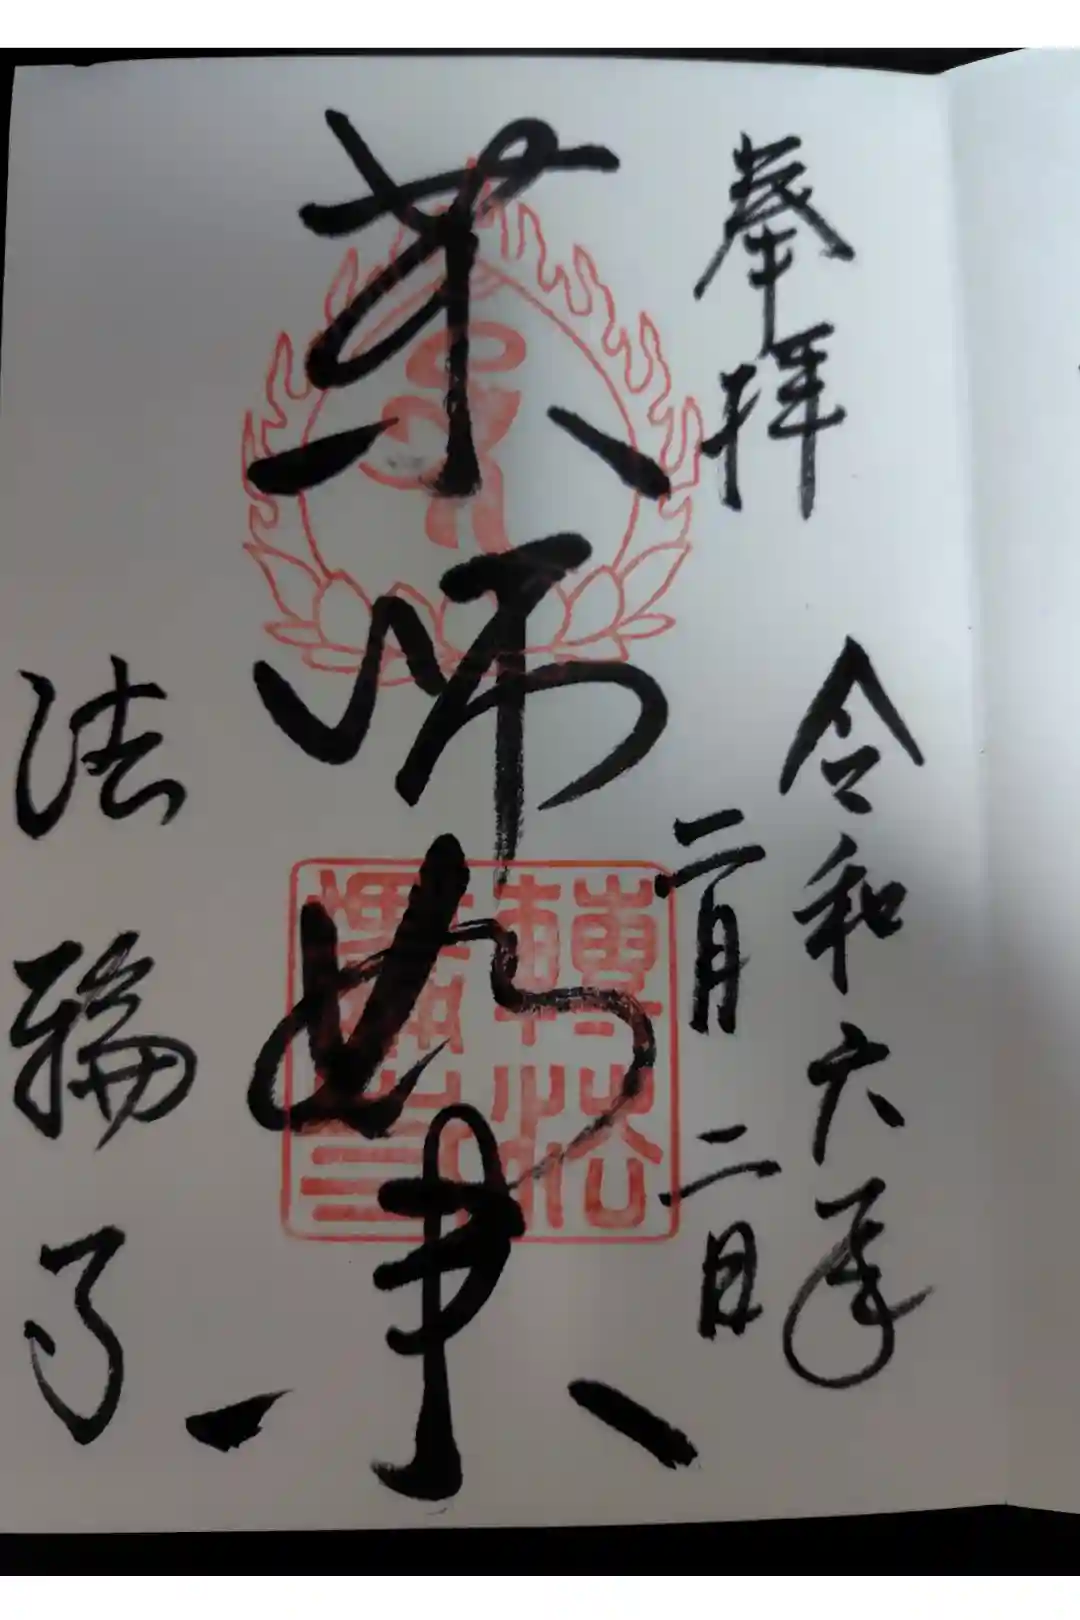 奉拝
令和六年
二月二日
薬師如来
法輪寺